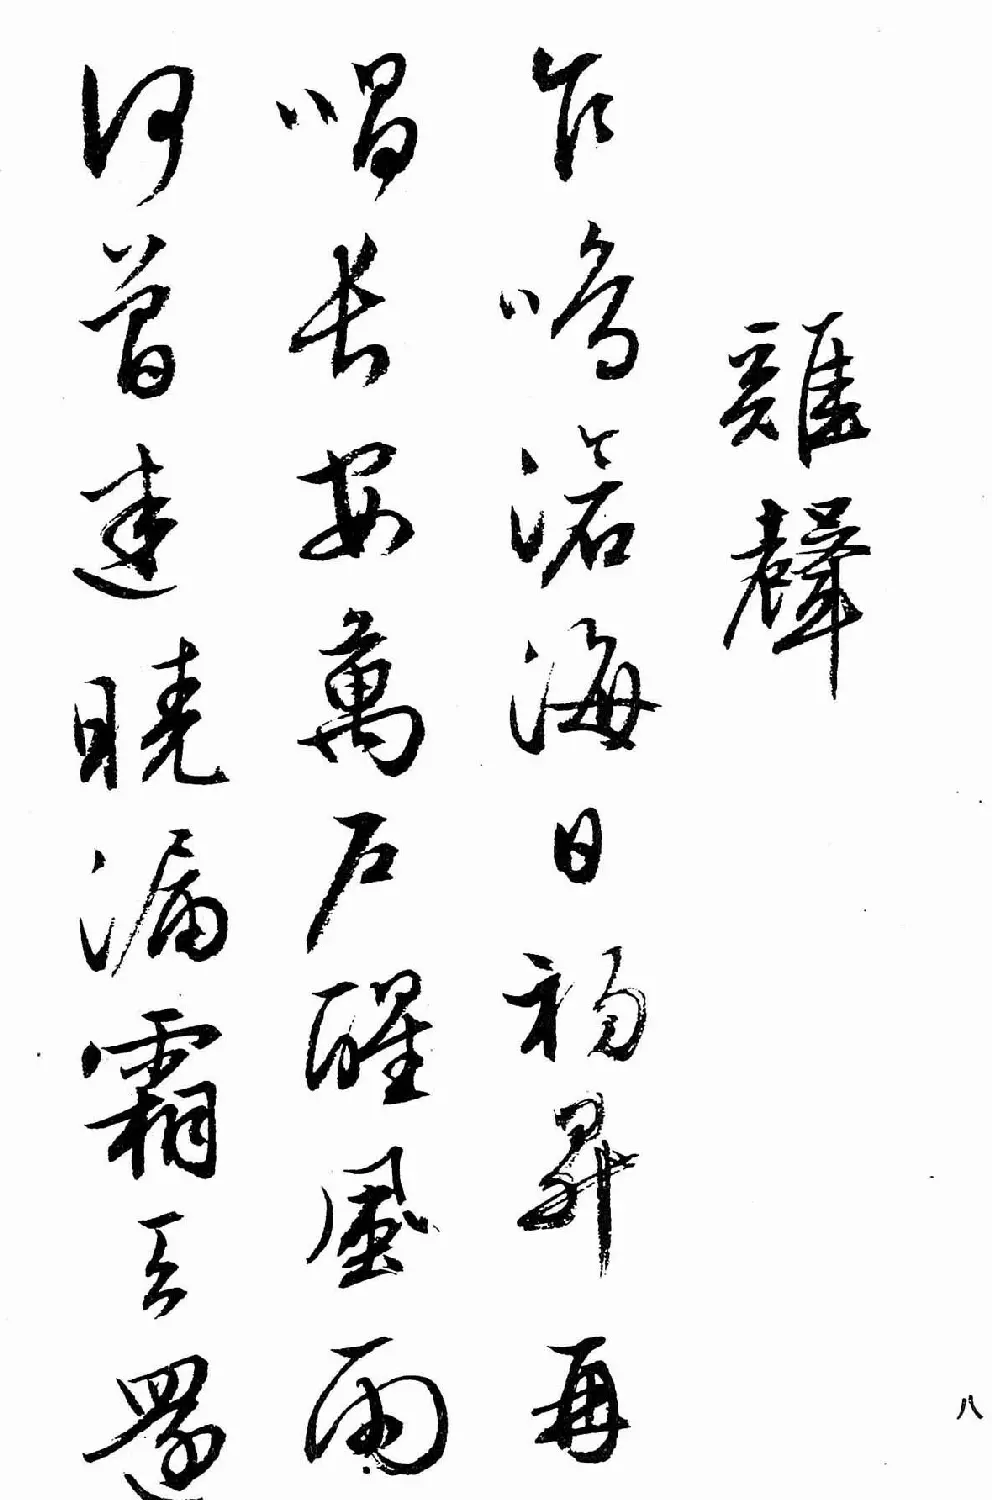 雞聲
乍鳴滄海日初昇再
唱長安萬戶醒風雨
何曾迷曉漏霜天還
八